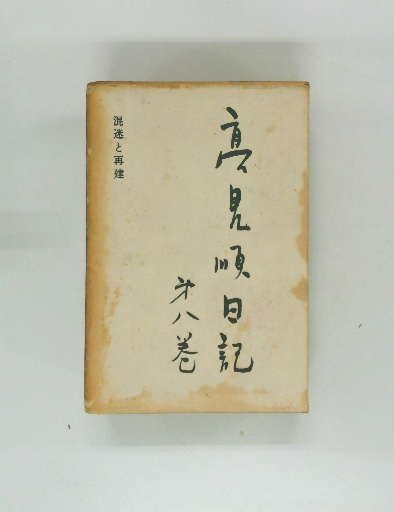 高見順日記
第八巻
混迷と再建